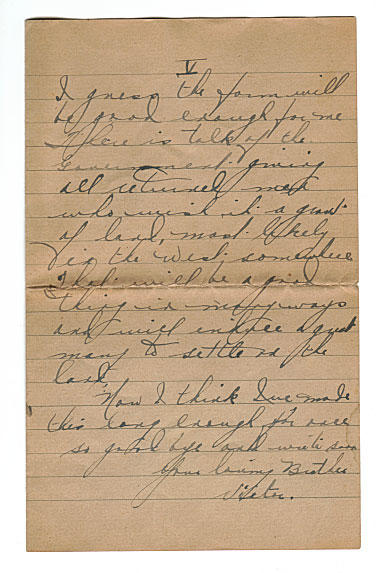 V
I guess the farm will
be good enough for me
There is talk of the
Government giving
all returned men
who wish it a grant
of land, most likely
in the West somewhere
That will be a good
thing in many ways
and will induce a great
many to settle on the
land,
Now I think I've made
this long enough for once
so good bye and write soon
Your loving Brother